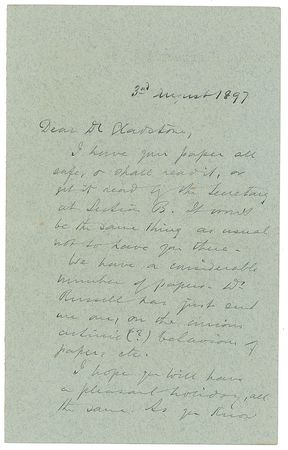 3rd August 1897
Dear Dr Gladstone,
I have your paper all
safe, & shall read it, or
get it read by the Secretary
at Section B. It won't
be the same thing as usual
not to have you there.
We have a considerable
number of papers. Dr
Russell has just sent
me one, on the curious
actinic (?) behaviour of
papers, etc.
I hope you will have
a pleasant holiday, all
the same. As you know